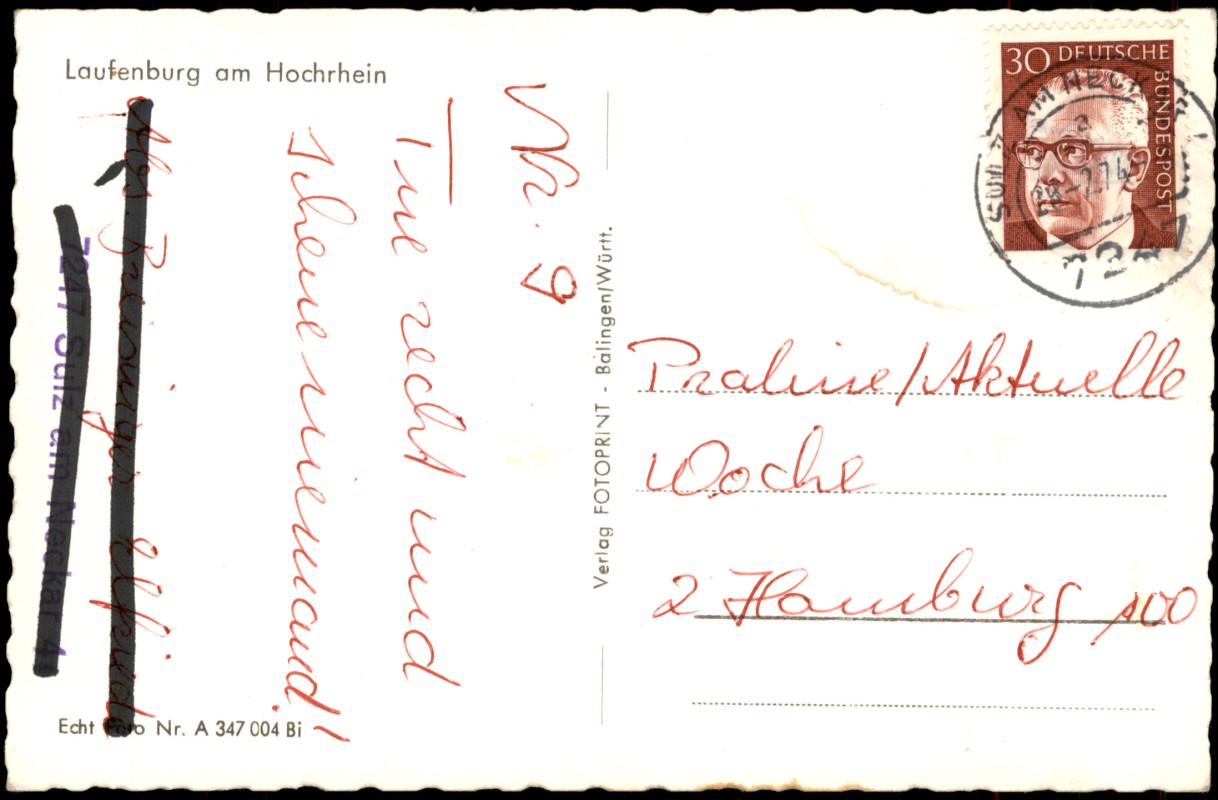 Laufenburg am Hochrhein
Nr. 9
Tue recht und
scheue niemand!
7247 Sulz am Neckar 4
Echt Foto Nr. A 347 004 Bi
Verlag FOTOPRINT - Balingen/Württ.
30 DEUTSCHE
BUNDESPOST
SULZ AM NECKAR
a
28.-2.74
7247
Praline/Aktuelle
Woche
2 Hamburg 100